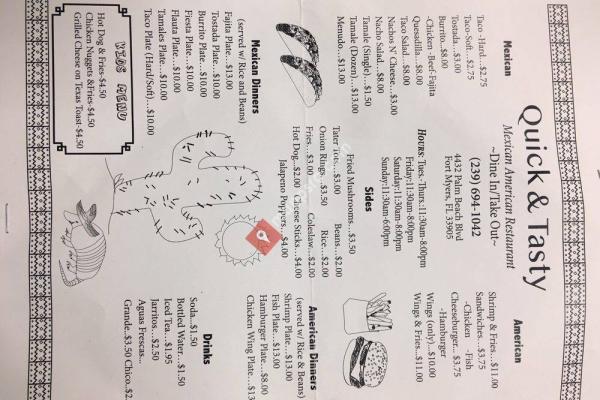 Quick & Tasty
Mexican American Restaurant
~Dine In/Take Out~
(239) 694-1042
4432 Palm Beach Blvd
Fort Myers, FL 33905
HOURS: Tues.-Thurs.:11:30am-8:00pm
Friday:11:30am-8:00pm
Saturday:11:30am-8:00pm
Sunday:11:30am-6:00pm
Mexican
Taco -Hard...$2.75
Taco-Soft...$2.75
Tostada...$3.00
Burrito...$8.00
-Chicken -Beef-Fajita
Quesadilla...$8.00
Taco Salad...$8.00
Nachos N' Cheese...$3.00
Nacho Salad...$8.00
Tamale (Single)...$1.50
Tamale (Dozen)...$13.00
Menudo...$13.00
American
Shrimp & Fries...$11.00
Sandwiches...$3.75
-Chicken -Fish
Cheeseburger...$3.75
-Hamburger
Wings (only)...$10.00
Wings & Fries...$11.00
Sides
Fried Mushrooms...$3.50
Tater Tots...$3.00
Beans...$2.00
Onion Rings...$3.50
Rice...$2.00
Fries...$3.00
Coleslaw...$2.00
Hot Dog...$2.00
Cheese Sticks...$4.00
Jalapeno Poppers...$4.00
Mexican Dinners
(served w/ Rice and Beans)
Fajita Plate...$13.00
Tostada Plate...$10.00
Burrito Plate...$10.00
Fiesta Plate...$10.00
Flauta Plate...$10.00
Tamales Plate...$10.00
Taco Plate (Hard/Soft)...$10.00
American Dinners
(served w/ Rice & Beans)
Shrimp Plate...$13.00
Fish Plate...$13.00
Hamburger Plate...$8.00
Chicken Wing Plate...$13
Drinks
Soda...$1.50
Bottled Water...$1.50
Iced Tea...$1.95
Jarritos...$2.50
Aguas Frescas...
Grande..$3.50 Chico..$2.
KIDS MENU
Hot Dog & Fries-$4.50
Chicken Nuggets &Fries-$4.50
Grilled Cheese on Texas Toast-$4.50